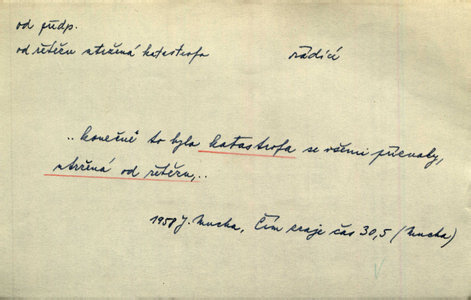 od předp.
od řetězu utržená katastrofa řádící
.. konečně to byla katastrofa se všemi příznaky,
utržená od řetězu,..
1958 J. Mucha, Čím zraje čas 30,5 (Mucha)